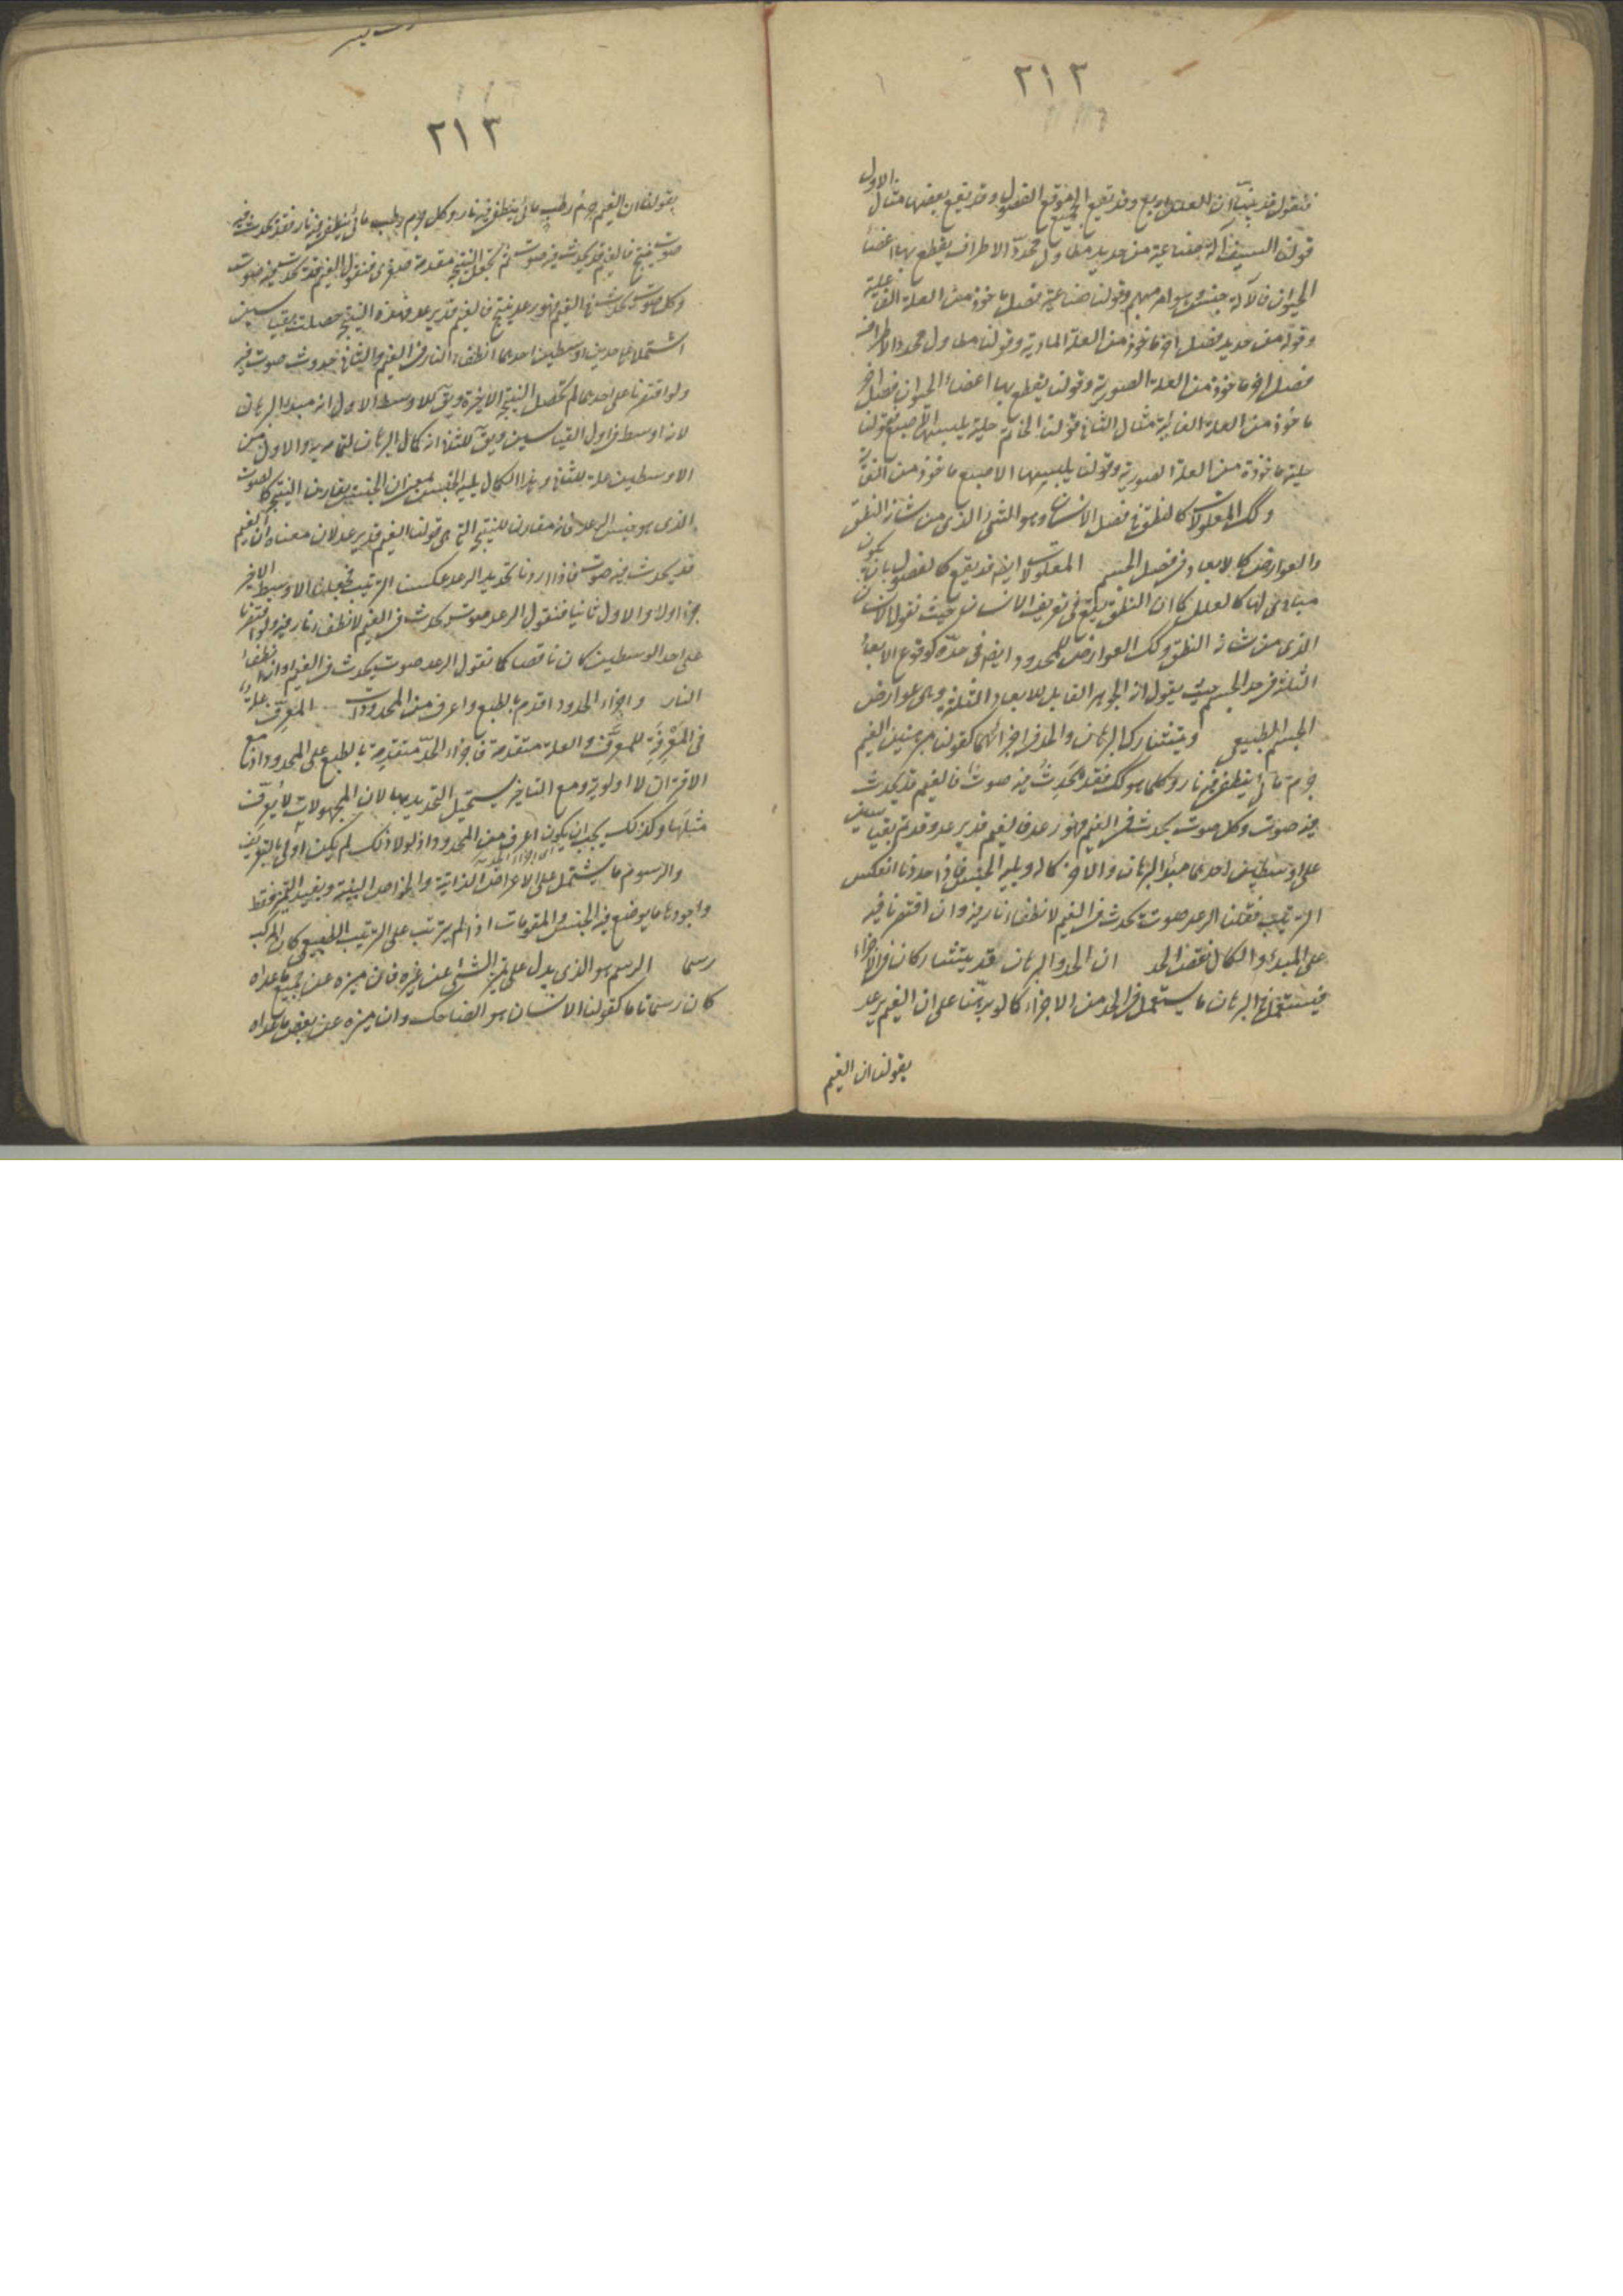 ٢١٢
فنقول قد تبين ان العلل اربع وقد تقع الجميع موقع الفصول وقد تقع بعضها مثال الاول
قولنا السيف الة صناعية من حديد مطاول محدد الاطراف يقطع بها اعضاء
الحيوان فالآلة جنس وهو امر مبهم وقولنا صناعية فصل ماخوذ من العلة الفاعلية
وقوله من حديد فصل اخر ماخوذ من العلة المادية وقولنا مطاول محدد الاطراف
فصل اخر ماخوذ من العلة الصورية وقولنا يقطع بها اعضاء الحيوان فصل اخر
ماخوذ من العلة الغائية مثال الثاني قولنا الخاتم حلية يلبسها الاصبع فقولنا
حلية ماخوذة من العلة الصورية وقولنا يلبسها الاصبع ماخوذ من الغائية
وكك المعلولات كالنطق في فصل الانسان وهو الشئ الذي من شانه النطق
والعوارض كالابعاد في فصل الجسم المعلولات ايضه قد يقع كالفصول بان يكون
مبادى لها كالعلل كما ان النطق يقع في تعريف الانسان حيث نقول الانسان
الذي من شانه النطق وكك العوارض للمحدود ايضه في حده كوقوع الابعاد
الثلثة في حد الجسم حيث يقول انه الجوهر القابل للابعاد الثلثة وهي عوارض
الجسم الطبيعي ويتشارك البرهان والحد في اجزائهما كقولنا مبرهنين الغيم
جرم مائي ينطفئ فيه نار وكلما هو كك فقد يحدث فيه صوت فالغيم قد يحدث
فيه صوت وكل صوت يحدث في الغيم فهو رعد فالغيم قد يرعد وقد تم بقياسين
على اوسطين احدهما مبدأ البرهان والاخر كماله ويليه الجنس فاذا حددنا انعكس
الترتيب فقلنا الرعد صوت يحدث في الغيم لانطفاء نار فيه وان اقتصرنا فيه
على المبدأ والكمال نقص الحد ان الحد والبرهان قد يتشاركان في الاجزاء
فيستعمل في البرهان ما يستعمل في الحد من الاجزاء كما لو برهنا على ان الغيم يرعد
بقولنا ان الغيم
٢١٣
بقولنا ان الغيم جرم رطب مائي ينطفئ فيه نار وكل جرم رطب مائي ينطفئ فيه نار فقد يحدث فيه
صوت ينتج فالغيم قد يحدث فيه صوت ثم نجعل النتيجة مقدمة صغرى فنقول الغيم قد يحدث فيه صوت
وكل صوت يحدث في الغيم فهو رعد ينتج فالغيم قد يرعد فهذه النتيجة حصلت بقياسين
اشتملا على حدين اوسطين احدهما انطفاء النار في الغيم والثاني حدوث صوت فيه
ولو اقتصرنا على احدهما لم تحصل النتيجة الاخيرة ويق للاوسط الاول انه مبدأ البرهان
لانه اوسط في اول القياسين ويق للثاني انه كمال البرهان لتمامه به والاول من
الاوسطين علة للثاني وهذا الكمال يليه الجنس بمعنى ان الجنس يقارن النتيجة كالصوت
الذي هو جنس الرعد فانه مقارن للنتيجة التي هي قولنا الغيم قد يرعد لان معناه ان الغيم
قد يحدث فيه صوت فاذا اردنا تحديد الرعد عكست الترتيب فجعلنا الاوسط الاخير
جزءا اولا والاول ثانيا فنقول الرعد صوت يحدث في الغيم لانطفاء نار فيه ولو اقتصرنا
على احد الوسطين كان ناقصا كما نقول الرعد صوت يحدث في الغيم او انطفاء
النار واجزاء الحدود اقدم بالطبع واعرف من المحدودات المعرف علة
في المعرفة للمعرف والعلة متقدمة فاجزاء الحد متقدمة بالطبع على المحدود اذ مع
الاقتران لا اولوية ومع التاخير يستحيل التحديد بها لان المجهولات لا يعرف
مثلها وكذلك يجب ان يكون اعرف من المحدود اذ لولا ذلك لم يكن اولى بالتعريف
والرسوم ما يشتمل على الاعراض الذاتية والخواص البينة ويفيد التميز فقط
واجودها ما يوضع فيه الجنس والمقومات اذا لم يترتب على الترتيب الطبيعي كان المركب
رسما الرسم هو الذي يدل على تميز الشئ عن غيره فان ميزه عن جميع ما عداه
كان رسما تاما كقولنا الانسان هو الضاحك وان ميزه عن بعض ما عداه